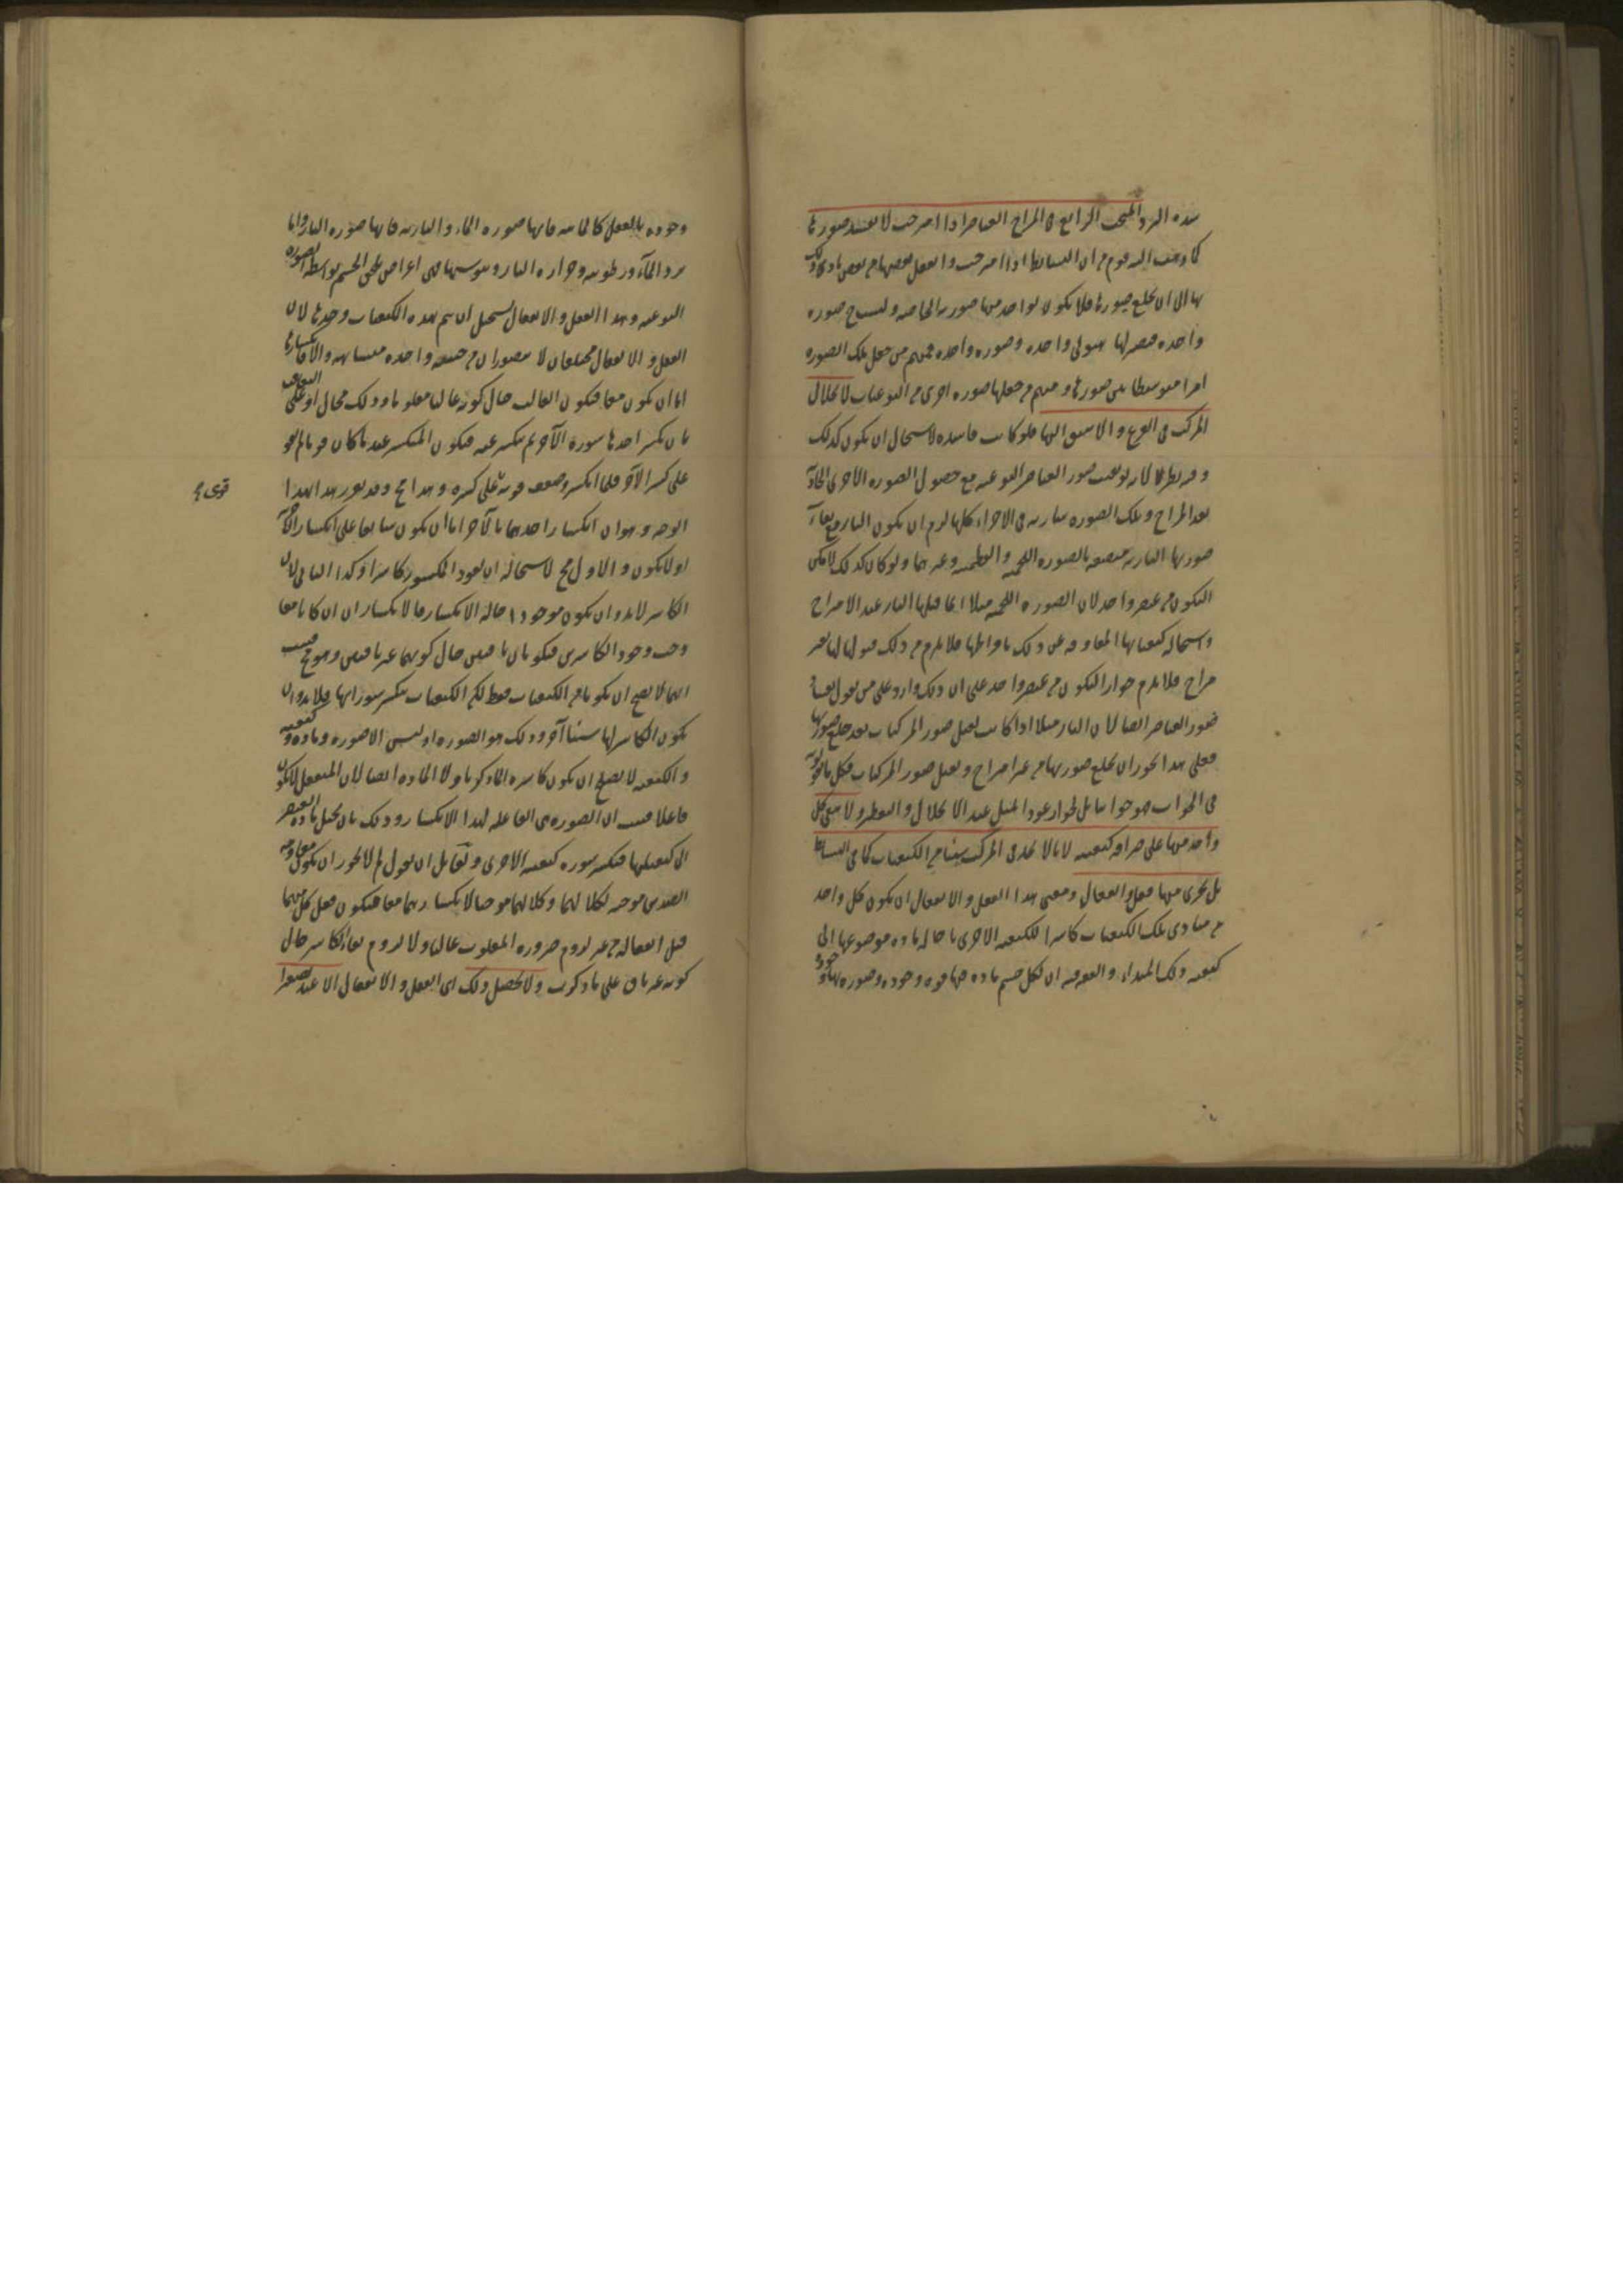 شده البرد المبحث الرابع في المزاج العناصر اذا امتزجت لا تفسد صورها
كما ذهب اليه قوم من ان البسائط اذا امتزجت وانفعل بعضها من بعض تادى ذلك
بها الى ان تخلع صورها فلا يكون لواحد منها صورته الخاصة ولبست ح صورة
واحدة فيصير لها هيولى واحدة وصورة واحدة فمنهم من جعل تلك الصورة
امرا متوسطا بين صورها ومنهم من جعلها صورة اخرى من النوعيات لانحلال
المركب في القرع والانبيق اليها فلو كانت فاسدة لاستحال ان يكون كذلك
وفيه نظر لانه لو بقيت صور العناصر النوعية مع حصول الصورة الاخرى الحادثة
بعد المزاج وتلك الصورة سارية في الاجزاء كلها لزم ان يكون النار مع بقاء
صورتها النارية متصفة بالصورة اللحمية والعظمية وغيرهما ولو كان كذلك لامكن
التكون من عنصر واحد لان الصورة اللحمية مثلا انما قبلها النار عند الامتزاج
واستحالة كيفياتها المعاوقة عن ذلك لا قبلها فلا يلزم من ذلك قبولها لها بغير
مزاج فلا يلزم جواز التكون من عنصر واحد على ان ذلك وارد على من يقول بفساد
صور العناصر ايضا لان النار مثلا اذا كانت تقبل صور المركبات بعد خلع صورتها
فعلى هذا يجوز ان تخلع صورتها من غير امتزاج وتقبل صور المركبات فكل ما تجيبون به
في الجواب فهو جوابنا بل لجواز عود المثل عند الانحلال والتقطير ولا يبقى كل
واحد منها على صرافة كيفيته لانا لا نجد في المركب شيئا من الكيفيات كما في البسائط
بل يجرى منها فعل وانفعال ومعنى هذا الفعل والانفعال ان يكون كل واحد
من مبادى تلك الكيفيات كاسرا للكيفية الاخرى باحالة مادة موضوعها الى
كيفية ذلك المبداء والتعرفة ان لكل جسم مادة فيها قوة وجوده وصورة بها وجود
وجوده بالفعل كالمائية فانها صورة الماء والنارية فانها صورة النار واما
برد الماء ورطوبته وحرارة النار ويبوستها فهى اعراض تلحق الجسم بواسطة الصورة
النوعية وهذا الفعل والانفعال يستحيل ان يتم بهذه الكيفيات وحدها لان
الفعل والانفعال مختلفان لا يتصوران من حيثية واحدة متشابهة والا فانكسارها
اما ان يكون معا فيكون الغالب حال كونه غالبا مغلوبا وذلك محال او على التعاقب
بان يكسر احدها سورة الآخر ثم ينكسر عنه فيكون المنكسر عند ما كان قويا لم يقو
على كسر الآخر فلما انكسر وضعف قوته قوى على كسره وهذا مح وقد يقرر هذا بهذا
الوجه وهو ان انكسار احدهما بالآخر اما ان يكون سابقا على انكسار الآخر
او لا يكون والاول مح لاستحالة ان يعود المكسور كاسرا وكذا الثانى لان
الكاسر لابد وان يكون موجودا حالة الانكسار فالانكساران ان كانا معا
وجب وجود الكاسرين فيكونان باقيين حال كونهما غير باقيين وهو مح فثبت
انها لا يصح ان يكون تلك الكيفيات فقط لكن الكيفيات تنكسر سوراتها فلابد وان
يكون الكاسر لها شيئا آخر وذلك هو الصورة اذ ليس الا صورة ومادة وكيفية
والكيفية لا يصلح ان يكون كاسرة لما ذكرنا ولا المادة ايضا لان المنفعل لا يكون
فاعلا فثبت ان الصورة هى الفاعلة لهذا الانكسار وذلك بان يحيل مادة العنصر
الى كيفيتها فتكسر سورة كيفية الاخرى ولقائل ان يقول لم لا يجوز ان يكون مقاومة
الضدين موجبة لكلالهما وكلالهما موجبا لانكسارهما معا فيكون فعل كل منهما
قبل انفعاله من غير لزوم صيرورة المغلوب غالبا ولا لزوم بقاء الكاسر حال
كونه غير باق على ما ذكرت ولا يحصل ذلك اى الفعل والانفعال الا عند تصغر